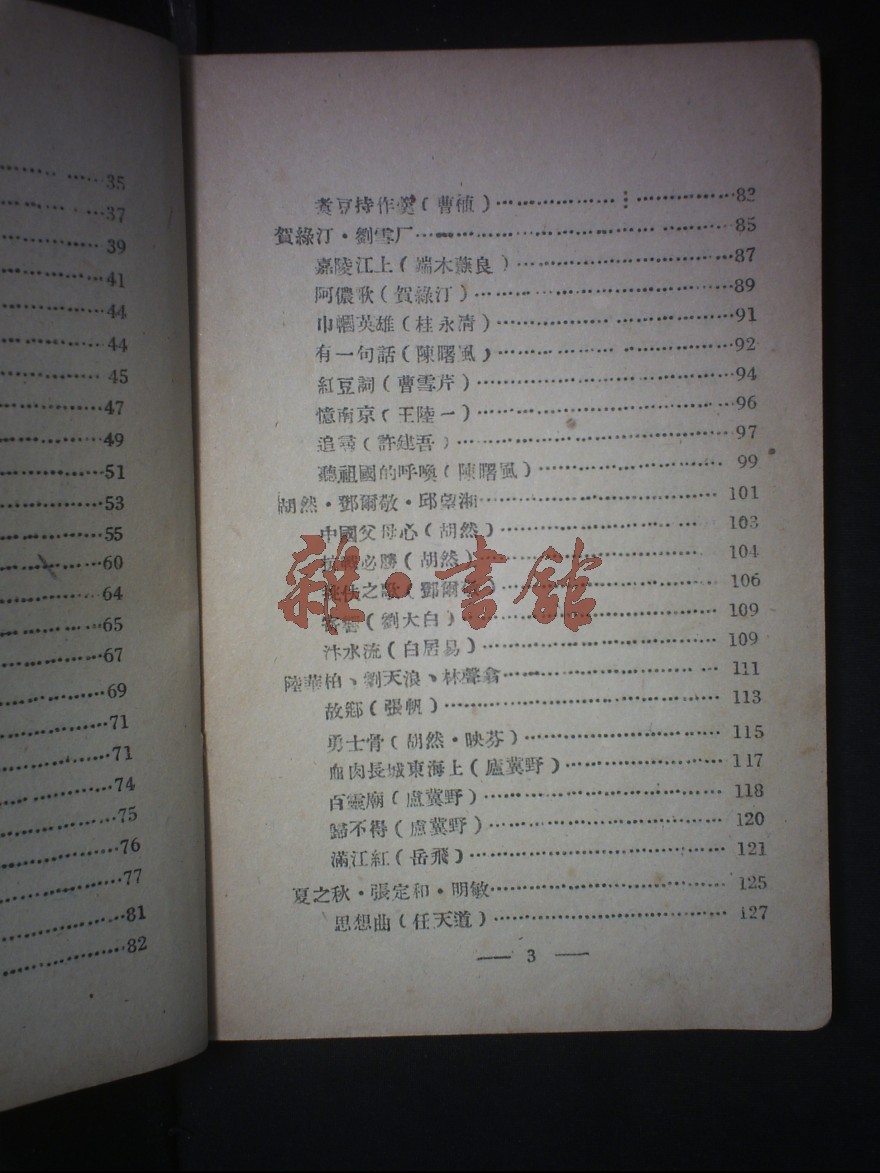 35
37
39
41
44
44
45
47
49
51
53
55
60
64
65
67
69
71
71
74
75
76
77
81
82
煑豆持作羹（曹植）……………82
賀綠汀・劉雪厂……………85
嘉陵江上（端木蕻良）……………87
阿儂歌（賀綠汀）……………89
巾幗英雄（桂永清）……………91
有一句話（陳曙風）……………92
紅豆詞（曹雪芹）……………94
憶南京（王陸一）……………96
追尋（許建吾）……………97
聽祖國的呼喚（陳曙風）……………99
胡然・鄧爾敬・邱望湘……………101
中國父母心（胡然）……………103
抗戰必勝（胡然）……………104
之歌（鄧爾敬）……………106
（劉大白）……………109
汴水流（白居易）……………109
陸華柏、劉天浪、林聲翕……………111
故鄉（張帆）……………113
勇士骨（胡然・映芬）……………115
血肉長城東海上（盧冀野）……………117
百靈廟（盧冀野）……………118
歸不得（盧冀野）……………120
滿江紅（岳飛）……………121
夏之秋・張定和・明敏……………125
思想曲（任天道）……………127
— 3 —
雜・書館